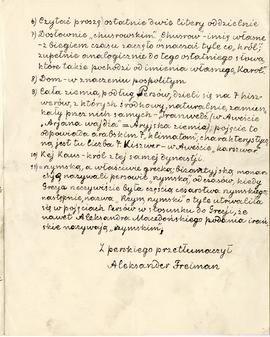 6) Czytać proszę ostatnie dwie litery oddzielnie
7) Dosłownie „chusrowskim". Chusrow - imię własne
- z biegiem czasu zaczęło oznaczać tyle co, król",
zupełnie analogicznie do tego ostatniego słowa,
które także pochodzi od imienia własnego „Karol".
8) Dom - w znaczeniu pospolitym
9) Cała ziemia, podług Persów, dzieli się na 7 kisz-
werów, z których środkowy, naturalnie, zamiesz-
kały przez nich samych - „Iranweidż" (w Awieście
„Arjana waidża" = Aryjska ziemia), pojęcie to
odpowiada arabskim 7 „klimatom", charakterysty-
czną jest tu liczba 7. Kiszwer - w Awieście, karszwar
10) Kej Kaus - król z tej samej dynastji.
11) = rzymska, a właściwie grecka; bizantyjską monar-
chję nazywali persowie „rzymską", od czasów, kiedy
Grecja rzeczywiście była częścią cesarstwa rzymskiego
następnie, nazwa „Rzym, rzymski" o tyle utrwaliła
się w pojęciach Persów w stosunku do Grecji, że
nawet Aleksandra Macedońskiego podania irań-
skie nazywają „rzymskim".
Z perskiego przetłumaczył
Aleksander Freiman